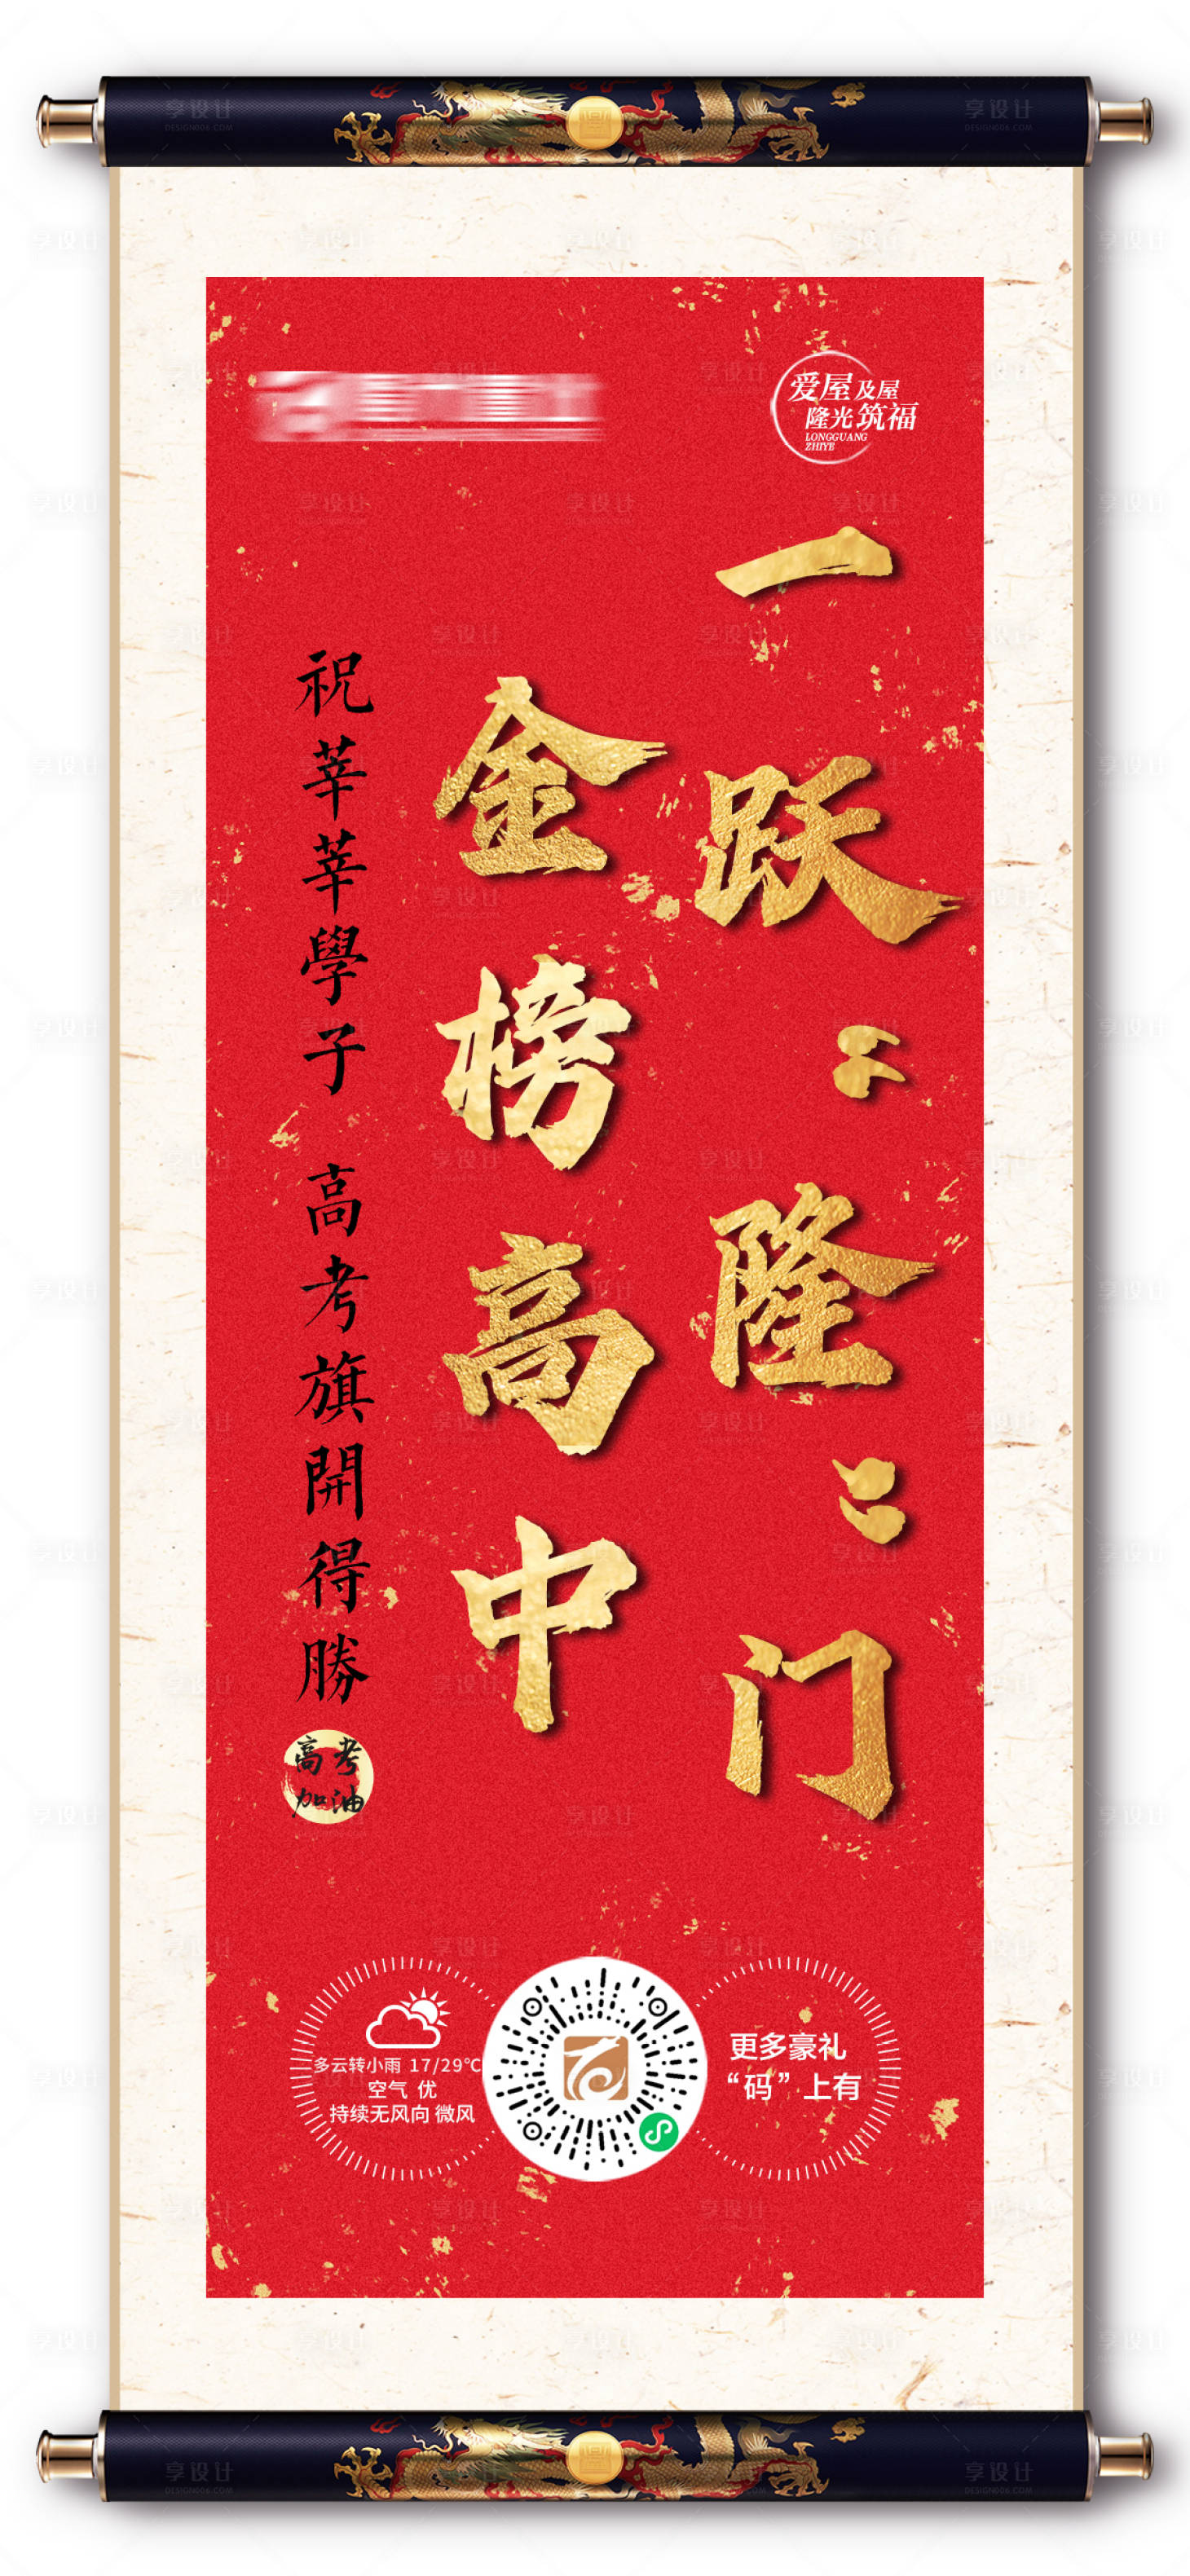 爱屋及屋
隆光筑福
LONGGUANG
ZHIYE
一跃“隆”门
金榜高中
祝莘莘學子 高考旗開得勝
高考
加油
多云转小雨 17/29℃
空气 优
持续无风向 微风
更多豪礼
“码”上有
享设计
DESIGN06.COM